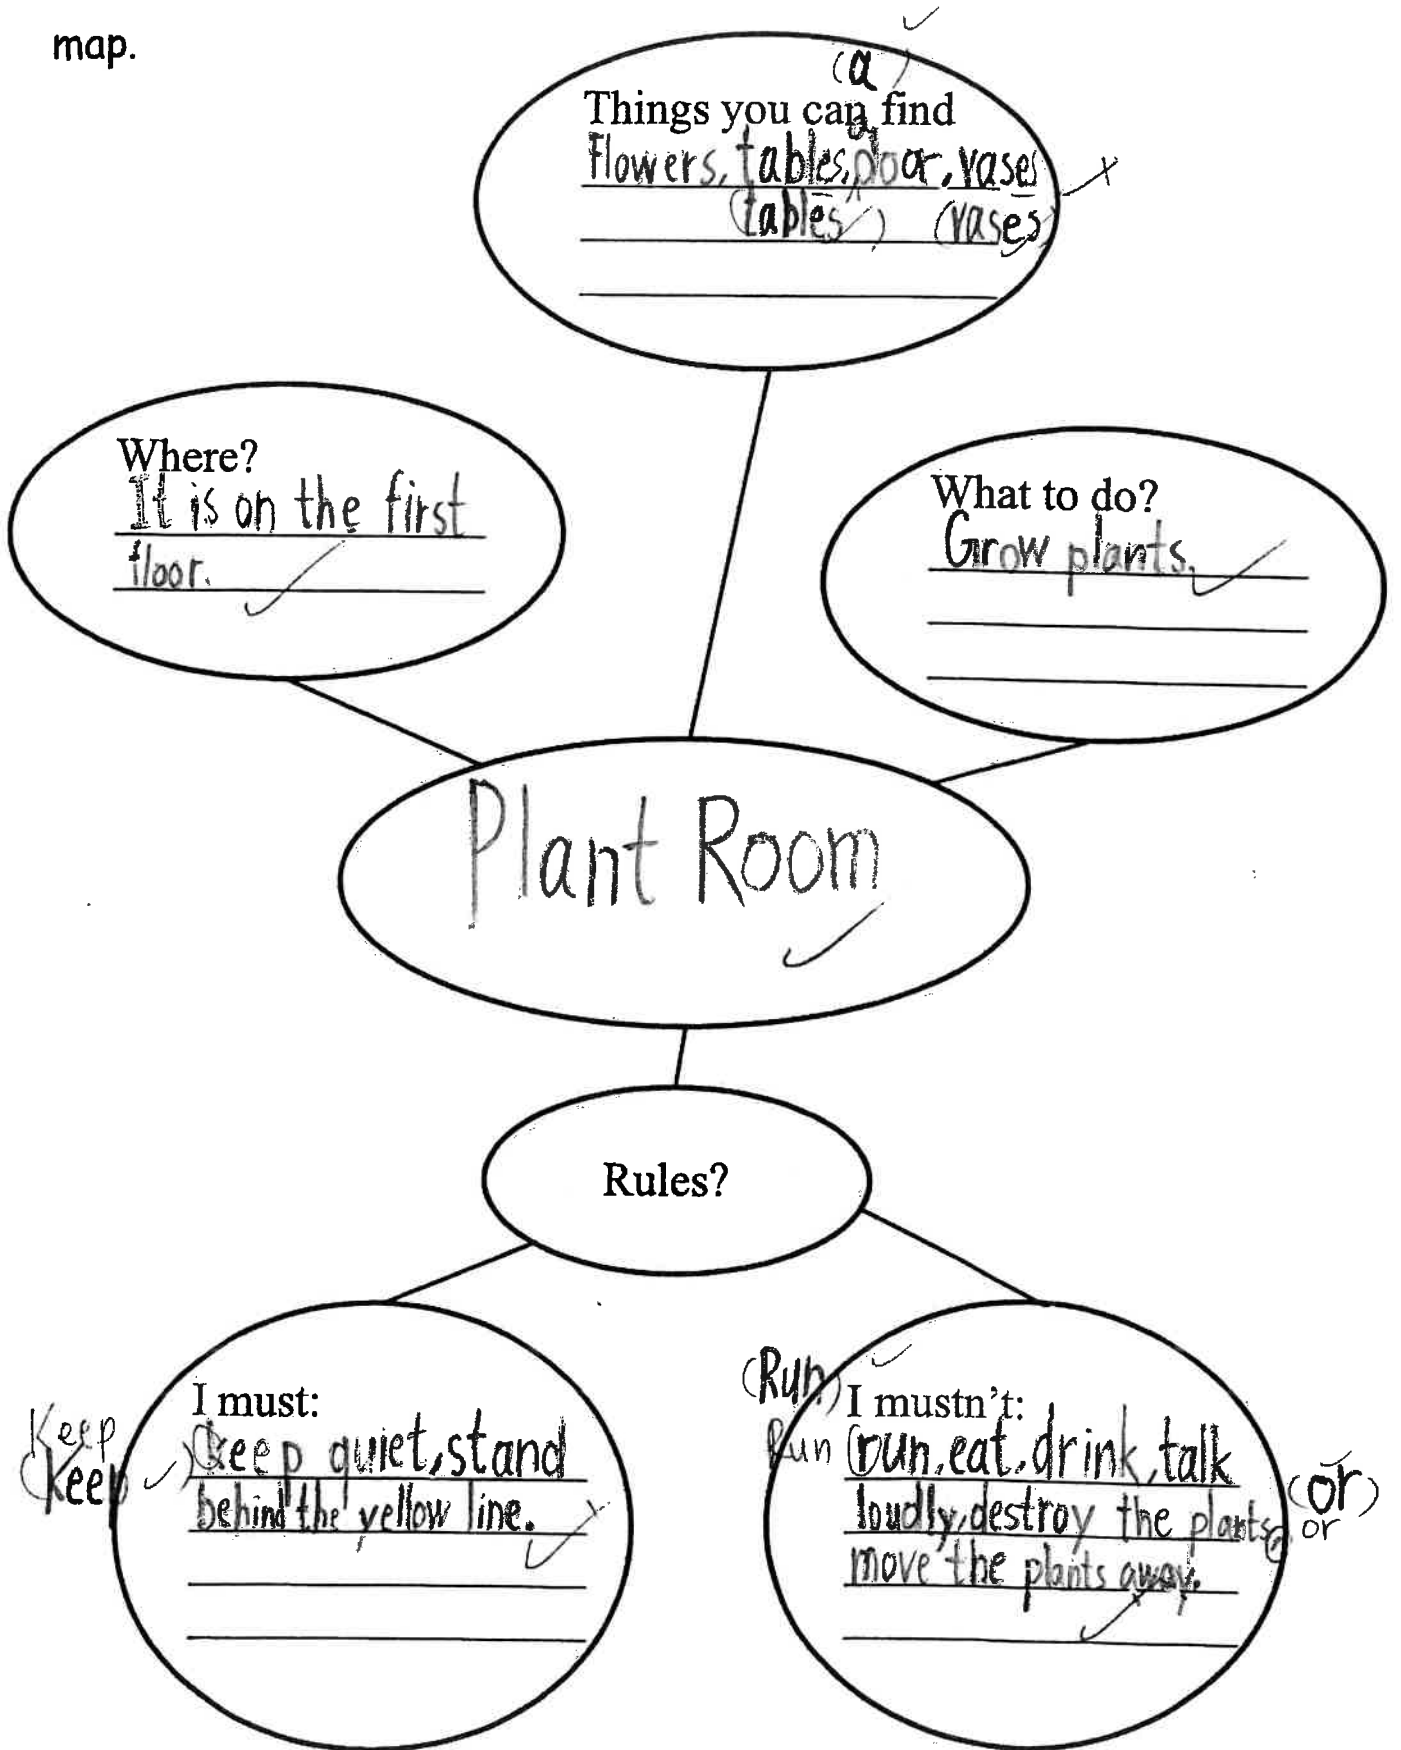 map.
(a)
Things you can find
a
Flowers, tables, door, vases
(tables) (vases)
Where?
It is on the first
floor.
What to do?
Grow plants.
Plant Room
Rules?
I must:
Keep
keep quiet, stand
(Keep)
behind the yellow line.
(Run)
I mustn't:
Run
run, eat, drink, talk
loudly, destroy the plants,
(or)
or
move the plants away.